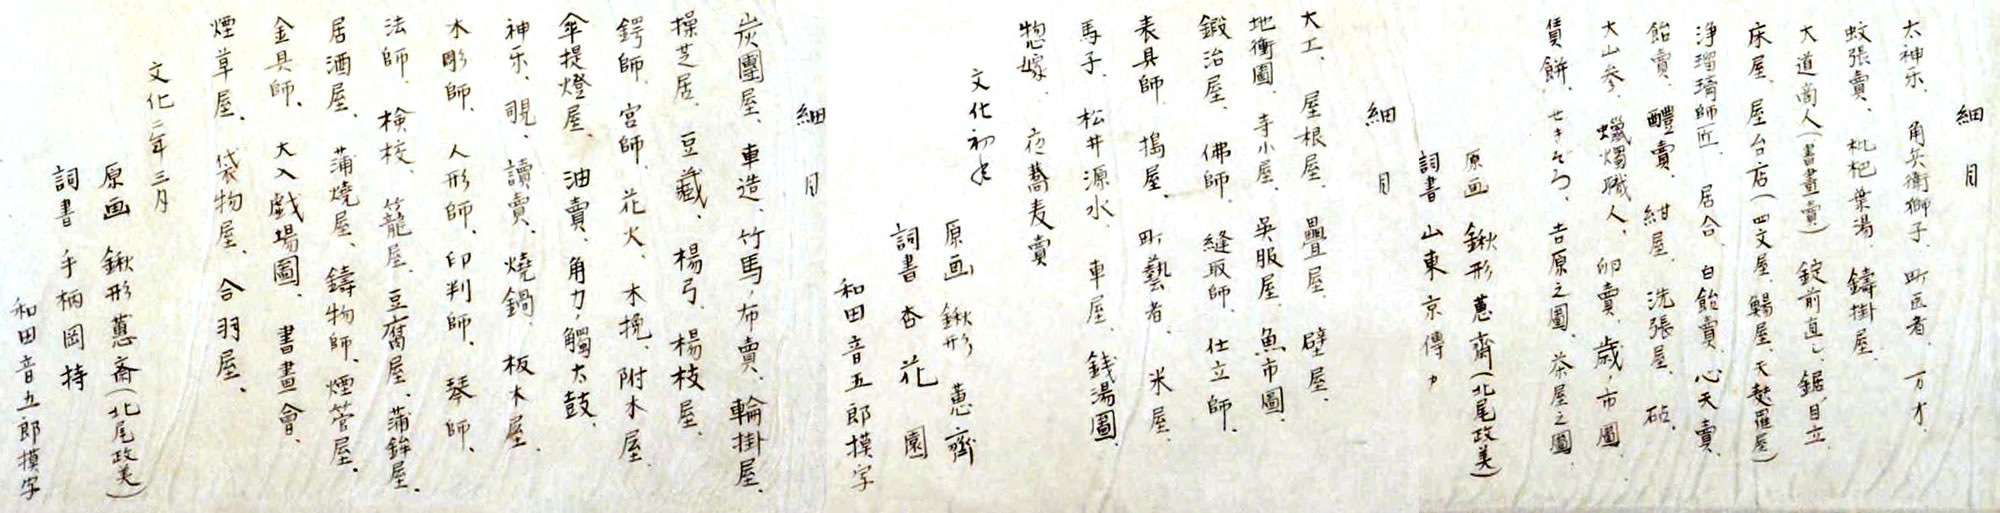 細目
太神乐、角兵衛獅子、町医者、万才、
蚊張賣、枇杷葉湯、鑄掛屋、
大道商人(書畫賣)錠前直し、鋸目立
床屋、屋台店(四文屋、鮨屋、天麩羅屋)
浄瑠璃師匠、居合、白飴賣、心天賣、
飴賣、醴賣、紺屋、洗張屋、砧、
大山参、蠟燭職人、卵賣、歳ノ市圖
賃餅、せきぞろ、吉原之圖、茶屋之圖
原画 鍬形蕙齋(北尾政美)
詞書 山東京傳カ
細目
大工、屋根屋、疊屋、壁屋、
地衝圖、寺小屋、吳服屋、魚市圖、
鍛治屋、佛師、縫取師、仕立師、
表具師、搗屋、町藝者、米屋、
馬子、松井源水、車屋、銭湯圖、
惣嫁、夜蕎麦賣
文化初年
原画 鍬形蕙齊
詞書 杏花園
和田音五郎摸字
細目
炭團屋、車造、竹馬ノ布賣、輪掛屋、
操芝居、豆藏、楊弓、楊枝屋、
鍔師、宮師、花火、木挽、附木屋、
傘提燈屋、油賣、角力ノ觸太鼓、
神乐、覗、讀賣、燒鍋、板木屋、
木彫師、人形師、印判師、琴師、
法師、検校、籠屋、豆腐屋、蒲鉾屋、
居酒屋、蒲燒屋、鑄物師、煙管屋、
金具師、大入戯場圖、書畫會、
煙草屋、袋物屋、合羽屋、
文化二年三月
原画 鍬形蕙斎(北尾政美)
詞書 手柄岡持
和田音五郎摸字